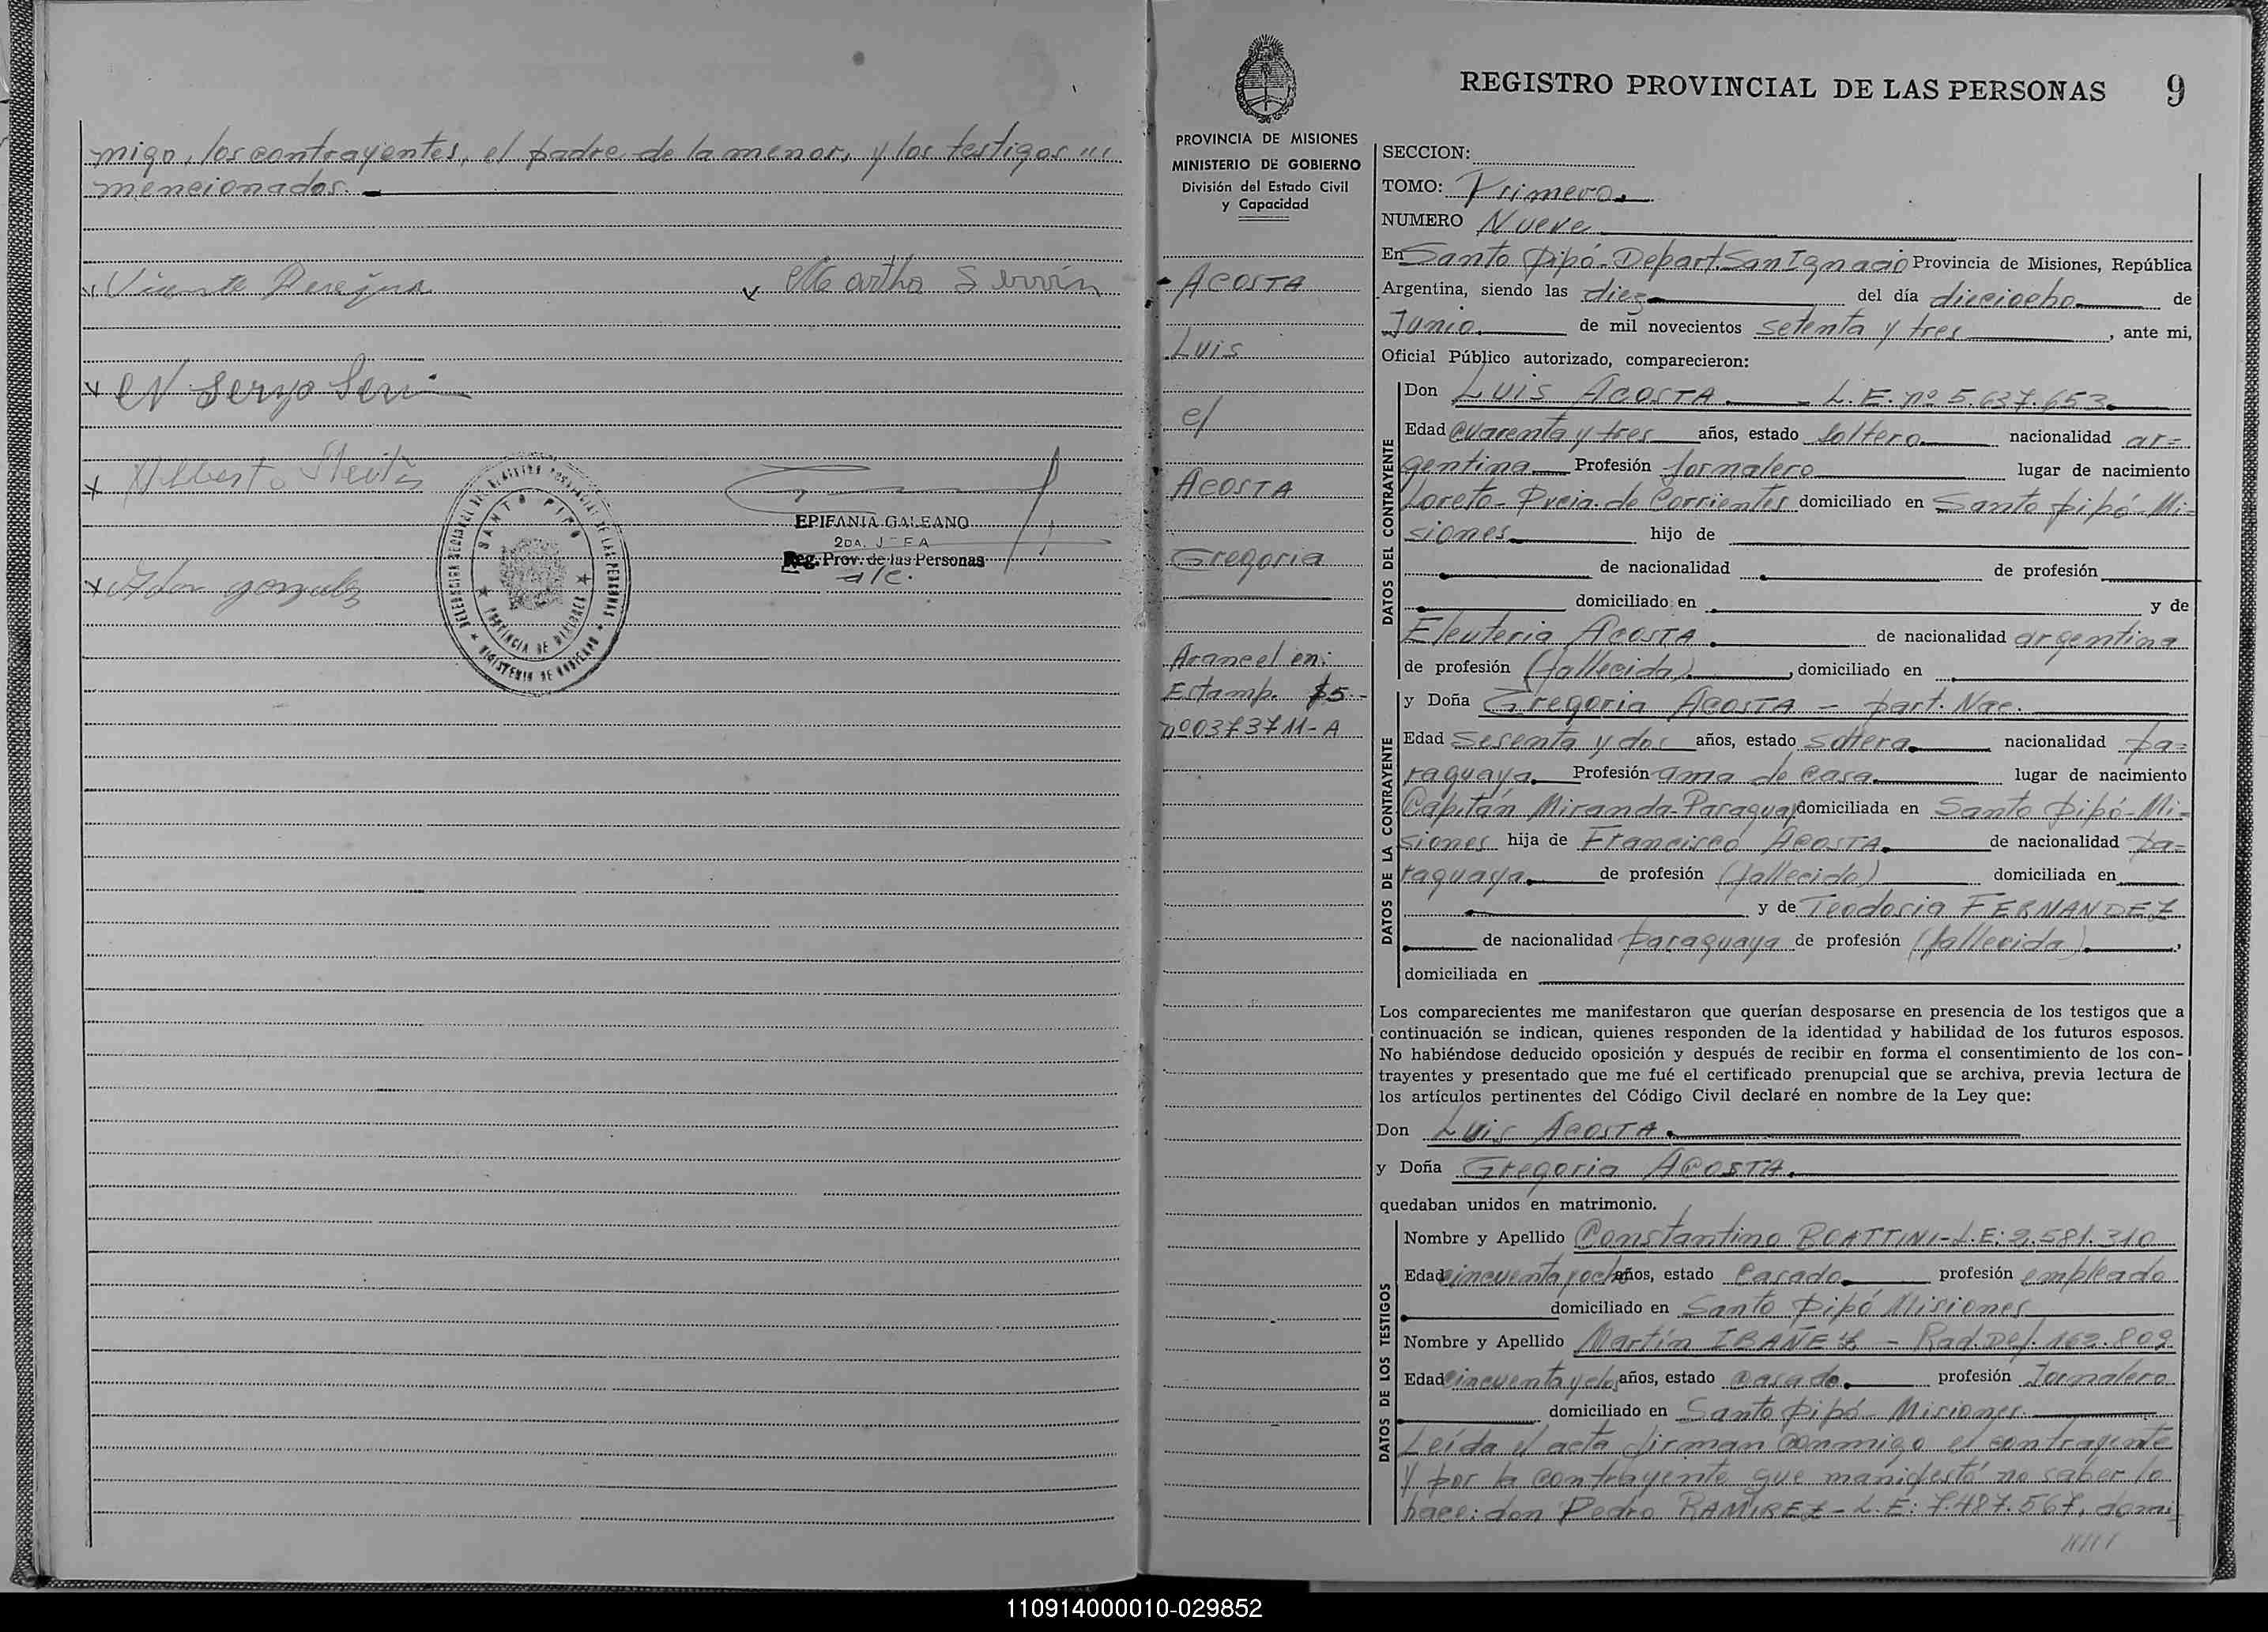 migo, los contrayentes, el padre de la menor, y los testigos
mencionados.
x Vicente
x Martha
x
x Alberto
x gonzalez
SANTO PIPO
PROVINCIA DE MISIONES
MINISTERIO DE GOBIERNO
EPIFANIA GALEANO
2DA. JEFA
Reg. Prov. de las Personas
a/c.
PROVINCIA DE MISIONES
MINISTERIO DE GOBIERNO
División del Estado Civil
y Capacidad
ACOSTA
Luis
c/
ACOSTA
Gregoria
Arancel en:
Estamp. $5.-
nº 0373711-A
REGISTRO PROVINCIAL DE LAS PERSONAS 9
SECCION:
TOMO: Primero
NUMERO Nueve
En Santo Pipó-Depart. San Ignacio Provincia de Misiones, República
Argentina, siendo las diez del día dieciocho de
Junio de mil novecientos setenta y tres, ante mi,
Oficial Público autorizado, comparecieron:
DATOS DEL CONTRAYENTE
Don LUIS ACOSTA - L.E. nº 5.637.653
Edad cuarenta y tres años, estado soltero nacionalidad ar=
gentina Profesión Jornalero lugar de nacimiento
Loreto-Pvcia. de Corrientes domiciliado en Santo Pipó-Mi=
siones hijo de
de nacionalidad de profesión
domiciliado en y de
Eleuteria ACOSTA de nacionalidad argentina
de profesión (fallecida), domiciliado en
DATOS DE LA CONTRAYENTE
y Doña Gregoria ACOSTA - part. Nac.
Edad sesenta y dos años, estado soltera nacionalidad pa=
raguaya Profesión ama de casa lugar de nacimiento
Capitán Miranda-Paraguay domiciliada en Santo Pipó-Mi=
siones hija de Francisco ACOSTA de nacionalidad pa=
raguaya de profesión (fallecido) domiciliada en
y de Teodosia FERNANDEZ
de nacionalidad paraguaya de profesión (fallecida),
domiciliada en
Los comparecientes me manifestaron que querían desposarse en presencia de los testigos que a
continuación se indican, quienes responden de la identidad y habilidad de los futuros esposos.
No habiéndose deducido oposición y después de recibir en forma el consentimiento de los con-
trayentes y presentado que me fué el certificado prenupcial que se archiva, previa lectura de
los artículos pertinentes del Código Civil declaré en nombre de la Ley que:
Don Luis ACOSTA
y Doña Gregoria ACOSTA.
quedaban unidos en matrimonio.
DATOS DE LOS TESTIGOS
Nombre y Apellido Constantino BOATTINI-L.E: 2.581.310
Edad cincuenta y ocho años, estado Casado profesión empleado
domiciliado en Santo Pipó Misiones
Nombre y Apellido Martín IBAÑEZ - Rad. Def. 162.802
Edad cincuenta y dos años, estado casado profesión Jornalero
domiciliado en Santo Pipó-Misiones
Leída el acta firman conmigo el contrayente
y por la contrayente que manifestó no saber lo
hace: don Pedro RAMIREZ-L.E: 7.487.567, domi
110914000010-029852